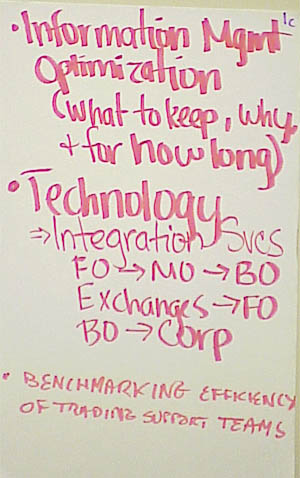 1c
• Information Mgmt
Optimization
(what to keep, why,
+ for how long)
• Technology
⇒ Integration Svcs
FO → MO → BO
Exchanges → FO
BO → Corp
• BENCHMARKING EFFICIENCY
OF TRADING SUPPORT TEAMS